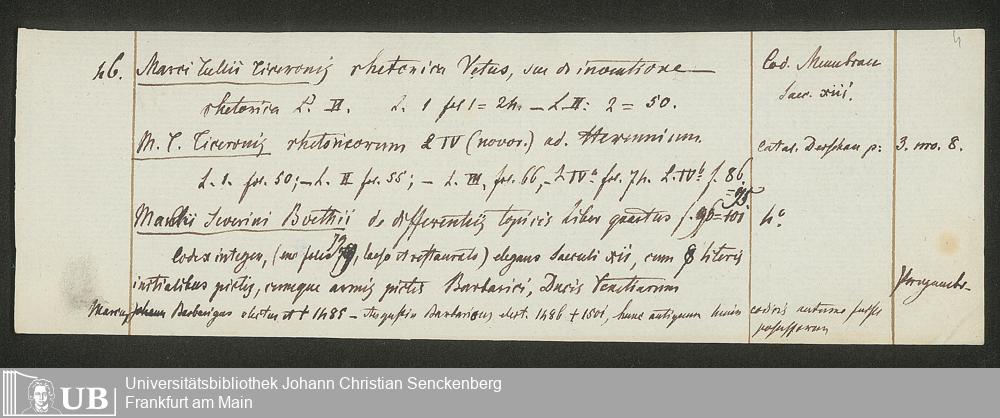 46. Marci Tullii Ciceronis rhetorica Vetus, sive de inventione Cod. Membran
rhetorica L. II. L. 1 fol 1 = 24. — L. II: 2 = 50. Saec. xiii.
M. T. Ciceronis rhetoricorum L IV (novor.) ad Herennium. Catal. Derschau p: 3. no. 8.
L. 1. fol. 50; — L. II fol. 55; — L. III, fol. 66, — L. IVa fol. 74. L. IVb f. 86.
= 95
Manlii Severini Boethii de differentiis topicis liber quartus f. 96 = 101 4o
Codex integer, (uno folio 79, laeso et restaurato) elegans saeculi xii, cum 8 literis
initialibus pictis, cumque armis pictis Barbarici, Ducis Venetiarum Pergambr.
Marcus Barbarigus electus et † 1485 — Augustin Barbaricus elect. 1486 † 1501, hunc antiquum huius codicis
possessorem
4
Universitätsbibliothek Johann Christian Senckenberg
Frankfurt am Main
UB